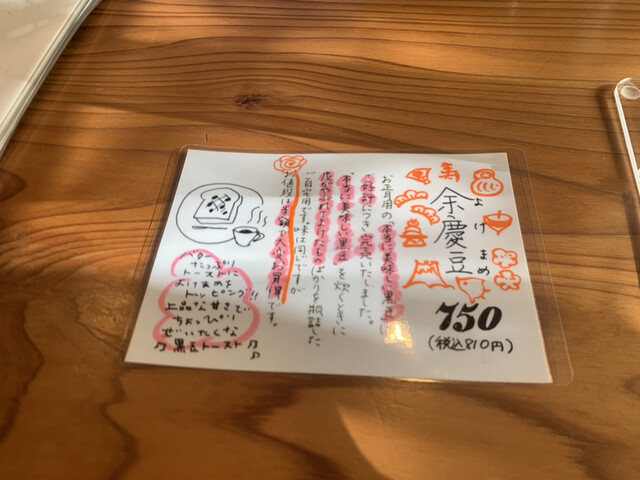 寿
余慶豆
よけまめ
750
(税込810円)
お正月用の「本当に美味しい黒豆」は
ご好評につき完売いたしました。
「本当に美味しい黒豆」を炊くときに
皮がやぶれてしまったものばかりを瓶詰した
ご自宅用です。味は同じですが
お値段は半額で大変お買得です。
バター
たっぷり
トーストに
よけまめを
トッピング!!
上品な甘さで
ちょっぴり
ぜいたくな
♫黒豆トースト♫